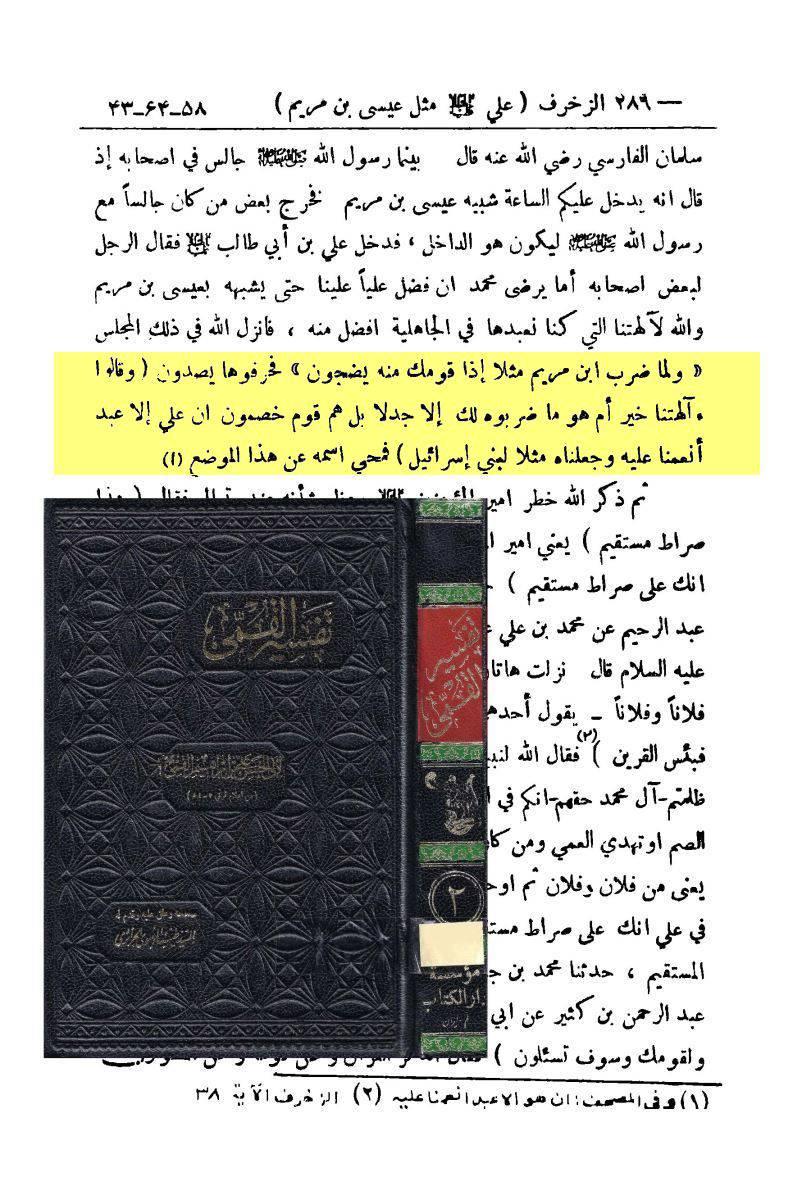 — ٢٨٦ الزخرف ( علي ﷷ مثل عيسى بن مريم ) ٥٨_٦۴_۴٣
سلمان الفارسي رضي الله عنه قال بينما رسول الله ﷺ جالس في اصحابه إذ
قال انه يدخل عليكم الساعة شبيه عيسى بن مريم فخرج بعض من كان جالساً مع
رسول الله ﷺ ليكون هو الداخل ، فدخل علي بن أبي طالب فقال الرجل
لبعض اصحابه أما يرضى محمد ان فضل علياً علينا حتى يشبهه بعيسى بن مريم
والله لآلهتنا التي كنا نعبدها في الجاهلية افضل منه ، فانزل الله في ذلك المجلس
« ولما ضرب ابن مريم مثلا إذا قومك منه يضجون » فحرفوها يصدون ( وقالوا
ءآلهتنا خير أم هو ما ضربوه لك إلا جدلا بل هم قوم خصمون ان علي إلا عبد
أنعمنا عليه وجعلناه مثلا لبني إسرائيل ) فمحي اسمه عن هذا الموضع (١)
ثم ذكر الله خطر امير
صراط مستقيم ) يعني امير
انك على صراط مستقيم )
عبد الرحيم عن محمد بن علي
عليه السلام قال نزلت هاتا
فلاناً وفلاناً _ يقول أحده
فبئس القرين )(٢) فقال الله لنبي
ظلمتم-آل محمد حقهم-انكم في
الصم او تهدي العمي ومن كا
يعنى من فلان وفلان ثم اوح
في علي انك على صراط مست
المستقيم ، حدثنا محمد بن ج
عبد الرحمن بن كثير عن ابي
ولقومك وسوف تسئلون )
(١) وفى المصحف: ان هو الا عبد انعمنا عليه (٢) الزخرف الآية ٣٨
تفسير القمي
لابي الحسن علي بن ابراهيم القمي
السيد طيب الموسوي الجزائري
تفسير
القمي
٢
مؤسسة
دار الكتاب